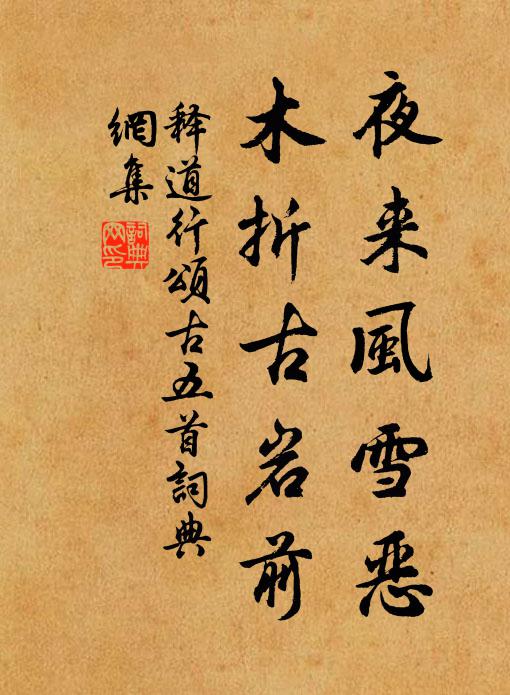 夜来風雪惡
木折古岩前
释道行頌古五首詞典
網集
詞典
网印